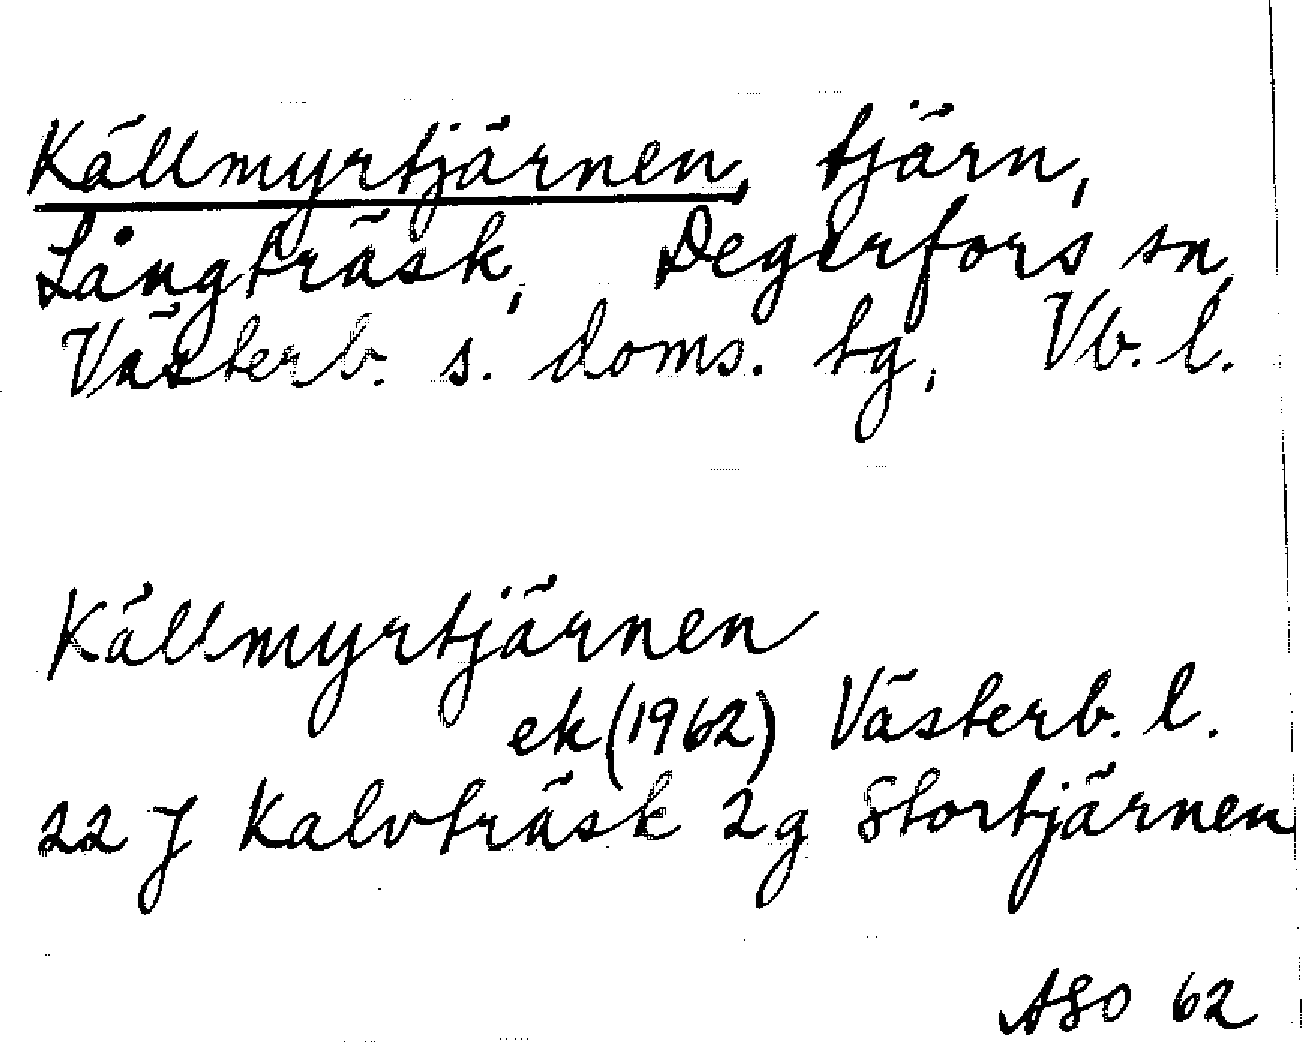 Källmyrtjärnen, tjärn,
Långträsk, Degerfors sn,
Västerb. s. doms. tg, Vb. l.
Källmyrtjärnen
ek (1962) Västerb. l.
22 J Kalvträsk 2g Stortjärnen
ASO 62